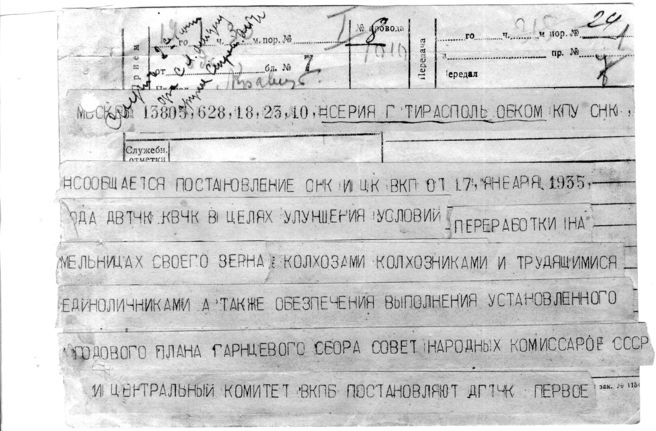 го ч. м. пор. № 24
№ провода
Прием
м. пор. № 8
Передача
1010
пр. №
от бл. № 7
Передал
МОСКВА 13805,628,18,23,10, НСЕРИЯ Г ТИРАСПОЛЬ ОБКОМ КПУ СНК
Служебн. отметки
НСООБЩАЕТСЯ ПОСТАНОВЛЕНИЕ СНК И ЦК ВКП ОТ 17 ЯНВАРЯ 1935
ОДА ДВТЧК КВЧК В ЦЕЛЯХ УЛУНШЕНИЯ УСЛОВИЙ ПЕРЕРАБОТКИ НА
МЕЛЬНИЦАХ СВОЕГО ЗЕРНА КОЛХОЗАМИ КОЛХОЗНИКАМИ И ТРУДЯЩИМИСЯ
ЕДИНОЛИЧНИКАМИ А ТАКЖЕ ОБЕСПЕЧЕНИЯ ВЫПОЛНЕНИЯ УСТАНОВЛЕННОГО
ГОДОВОГО ПЛАНА ГАРНЦЕВОГО СБОРА СОВЕТ НАРОДНЫХ КОМИССАРОВ СССР
И ЦЕНТРАЛЬНЫЙ КОМИТЕТ ВКПБ ПОСТАНОВЛЯЮТ ДГТЧК ПЕРВОЕ
зак. №